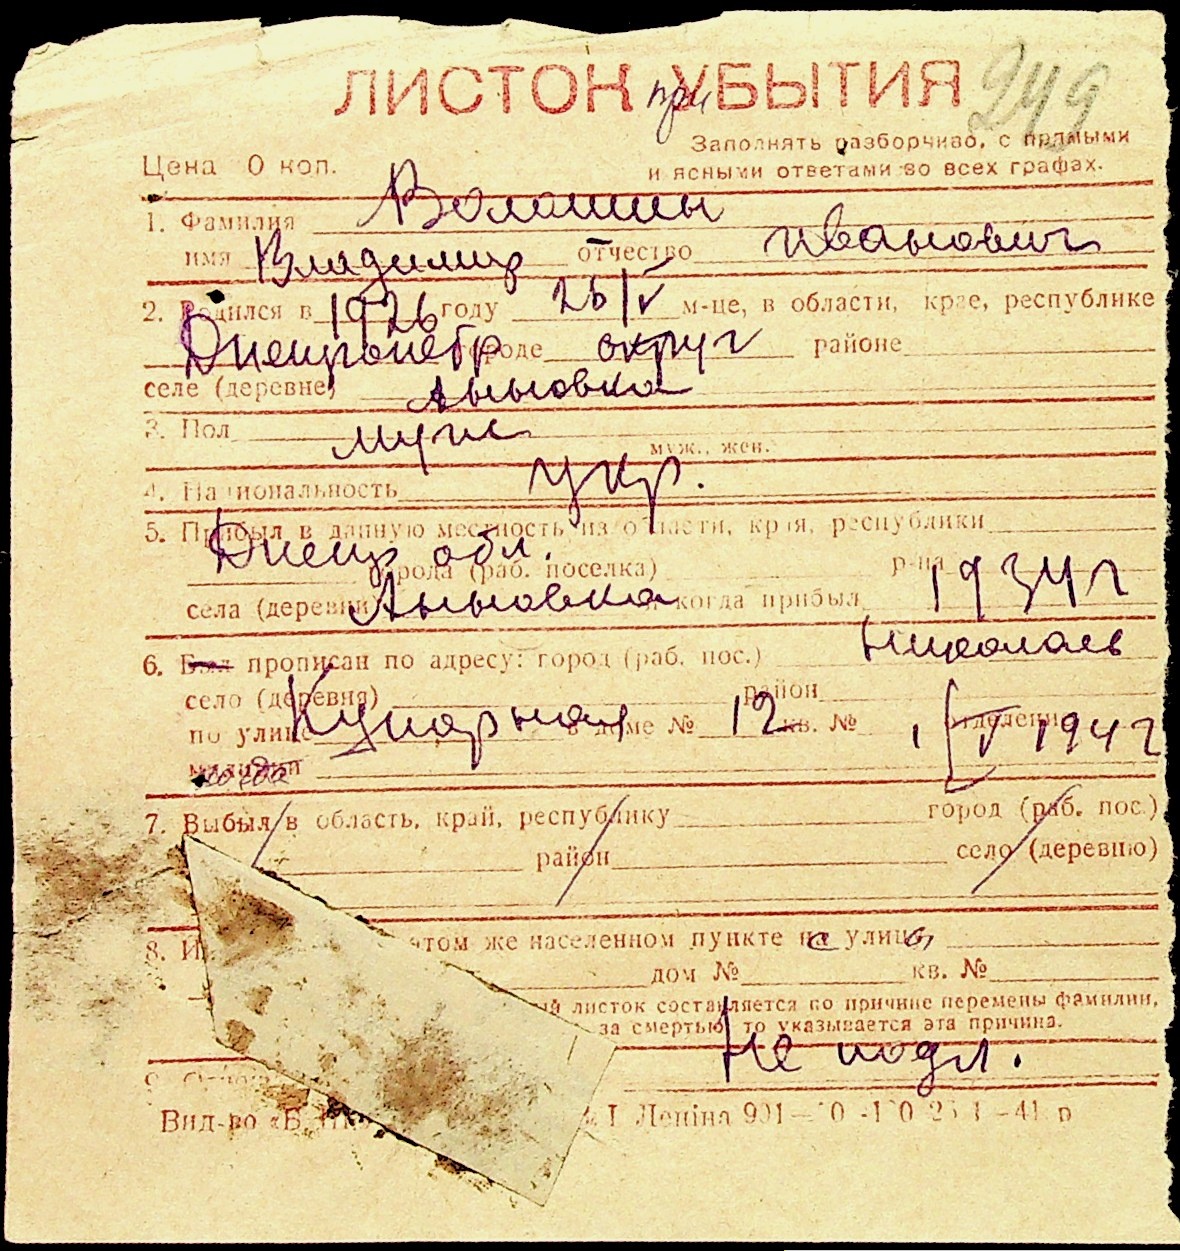 ЛИСТОК при УБЫТИЯ 249
Заполнять разборчиво, с прямыми
Цена 0 коп. и ясными ответами во всех графах.
1. Фамилия Волошины
имя Владимир отчество Иванович
2. Родился в 1926 году 26/V м-це, в области, крае, республике
Днепропетр городе округ районе
селе (деревне)
3. Пол муж
муж., жен.
4. Национальность укр.
5. Прибыл в данную местность из области, края, республики
Днепр обл. города (раб. поселка) р-на
села (деревни) когда прибыл 1934 г
6. Был прописан по адресу: город (раб. пос.) Николаев
село (деревня) район
по улице в доме № 12 кв. № отделение 1/V 1942
милиции когда
7. Выбыл в область, край, республику город (раб. пос.)
район село (деревню)
8. этом же населенном пункте с улицы
дом № кв. №
листок составляется по причине перемены фамилии,
за смертью, то указывается эта причина.
Не подл.
9.
Вид-во Леніна